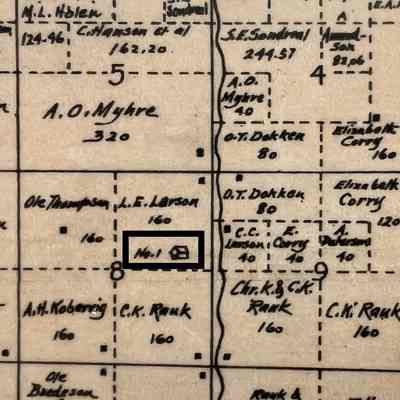 M.L. Holen
124.46
C. Hansen et al
162.20
Sondral
S.E. Sondral
244.57
Amund-
son
82.06
5
4
A.O.
Myhre
40
A.O. Myhre
320
O.T. Dokken
80
Elizabeth
Corry
160
Ole Thompson
160
L.E. Larson
160
O.T. Dokken
80
Elizabeth
Corry
120
C.C.
Larson
40
E.
Corry
40
A.
Peterson
40
No. 1
8
9
A.H. Koberrig
160
C.K. Rauk
160
Chr. K. & C.K.
Rauk
160
C.K. Rauk
160
Ole
Bredeson
Rauk &